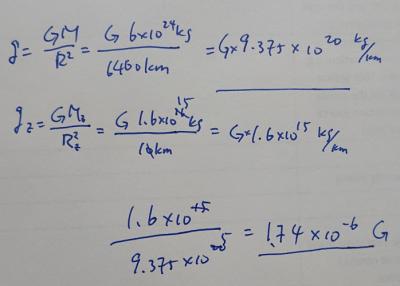 g = GM/R² = G 6×10²⁴kg/6400km = G×9.375×10²⁰ kg/km
g_z = GM_z/R_z² = G 1.6×10¹⁵kg/1km = G×1.6×10¹⁵ kg/km
1.6×10¹⁵/9.375×10²⁰ = 1.74×10⁻⁶ G